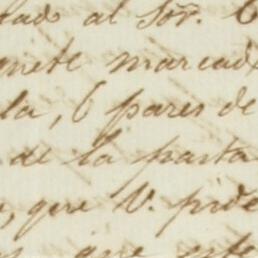 tado al Sor. C
nete marcad
la, 6 pares de
de la pasta
, que V. pide
que